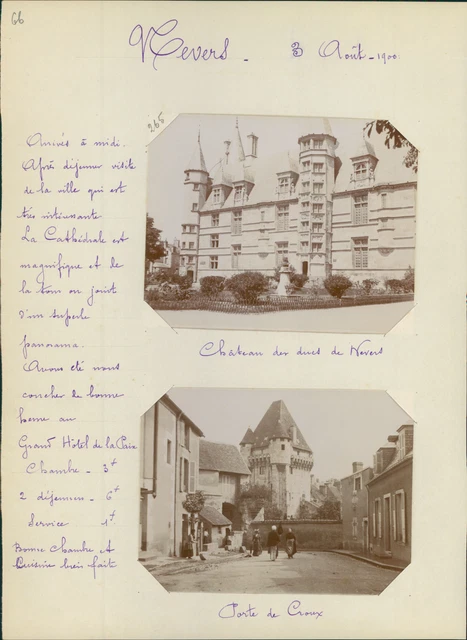 66
Nevers - 3 Août - 1900
265
Arrivés à midi.
Après déjeuner visite
de la ville qui est
très intéressante
La Cathédrale est
magnifique et de
la tour on jouit
d'un superbe
panorama.
Avons été nous
coucher de bonne
heure au
Grand Hôtel de la Paix
Chambre - 3f
2 déjeuners - 6f
Service 1f
Bonne chambre et
Cuisine bien faite
Château des ducs de Nevers
Porte de Croux